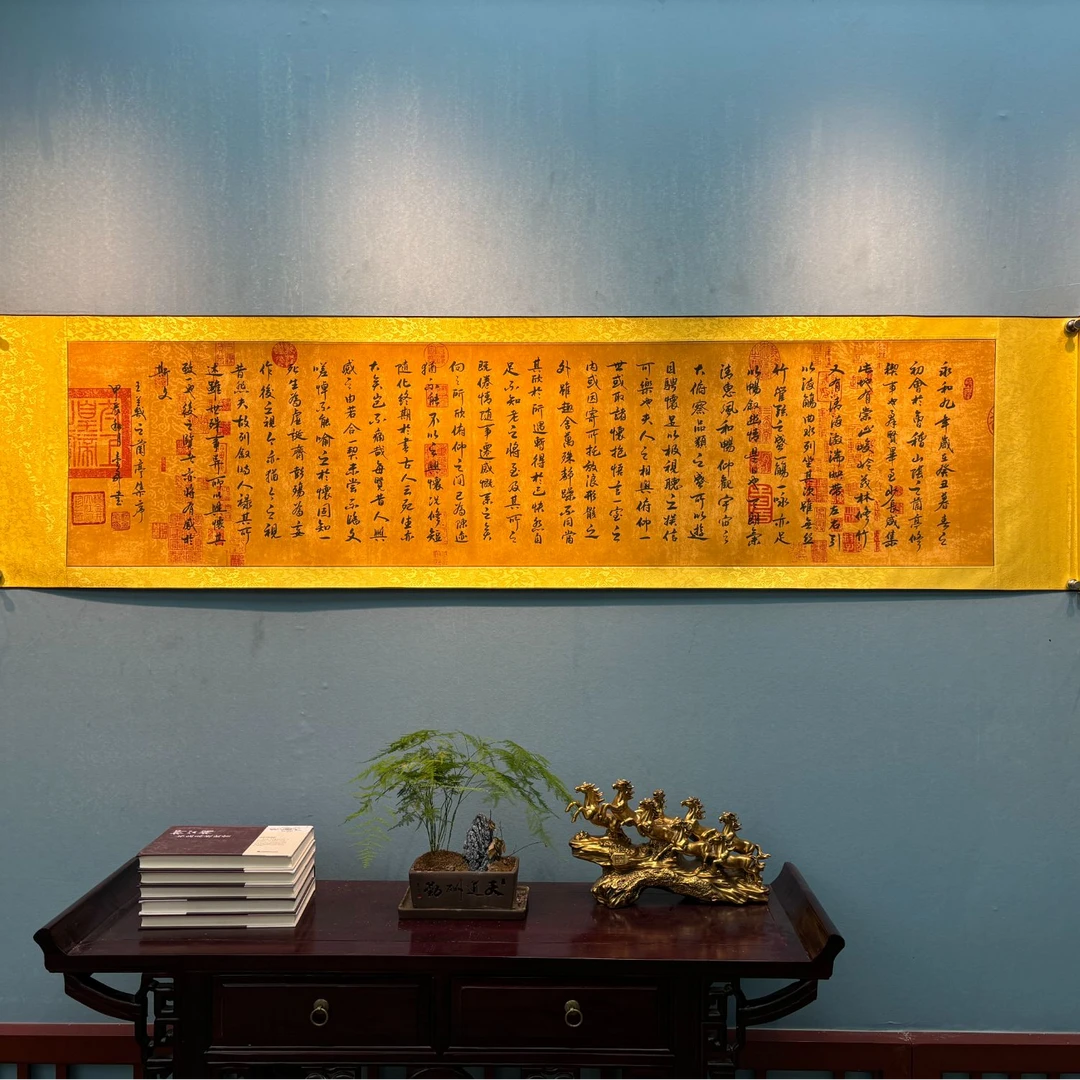 永和九年歲在癸丑暮春之
初會於會稽山陰之蘭亭修
禊事也羣賢畢至少長咸集
此地有崇山峻嶺茂林修竹
又有清流激湍映帶左右引
以流觴曲水列坐其次雖無絲
竹管弦之盛一觴一詠亦足
以暢敘幽情是日也天朗氣
清惠風和暢仰觀宇宙之
大俯察品類之盛所以遊
目騁懷足以極視聽之娛信
可樂也夫人之相與俯仰一
世或取諸懷抱悟言一室之
內或因寄所托放浪形骸之
外雖趣舍萬殊靜躁不同當
其欣於所遇暫得於己快然自
足不知老之將至及其所之
既倦情隨事遷感慨系之矣
向之所欣俯仰之間已為陳迹
猶不能不以之興懷況修短
隨化終期於盡古人云死生亦
大矣豈不痛哉每覽昔人興
感之由若合一契未嘗不臨文
嗟悼不能喻之於懷固知一
死生為虛誕齊彭殤為妄
作後之視今亦猶今之視
昔悲夫故列敘時人錄其所
述雖世殊事異所以興懷其
致一也後之覽者亦將有感於
斯文
王羲之蘭亭集序
天道酬勤